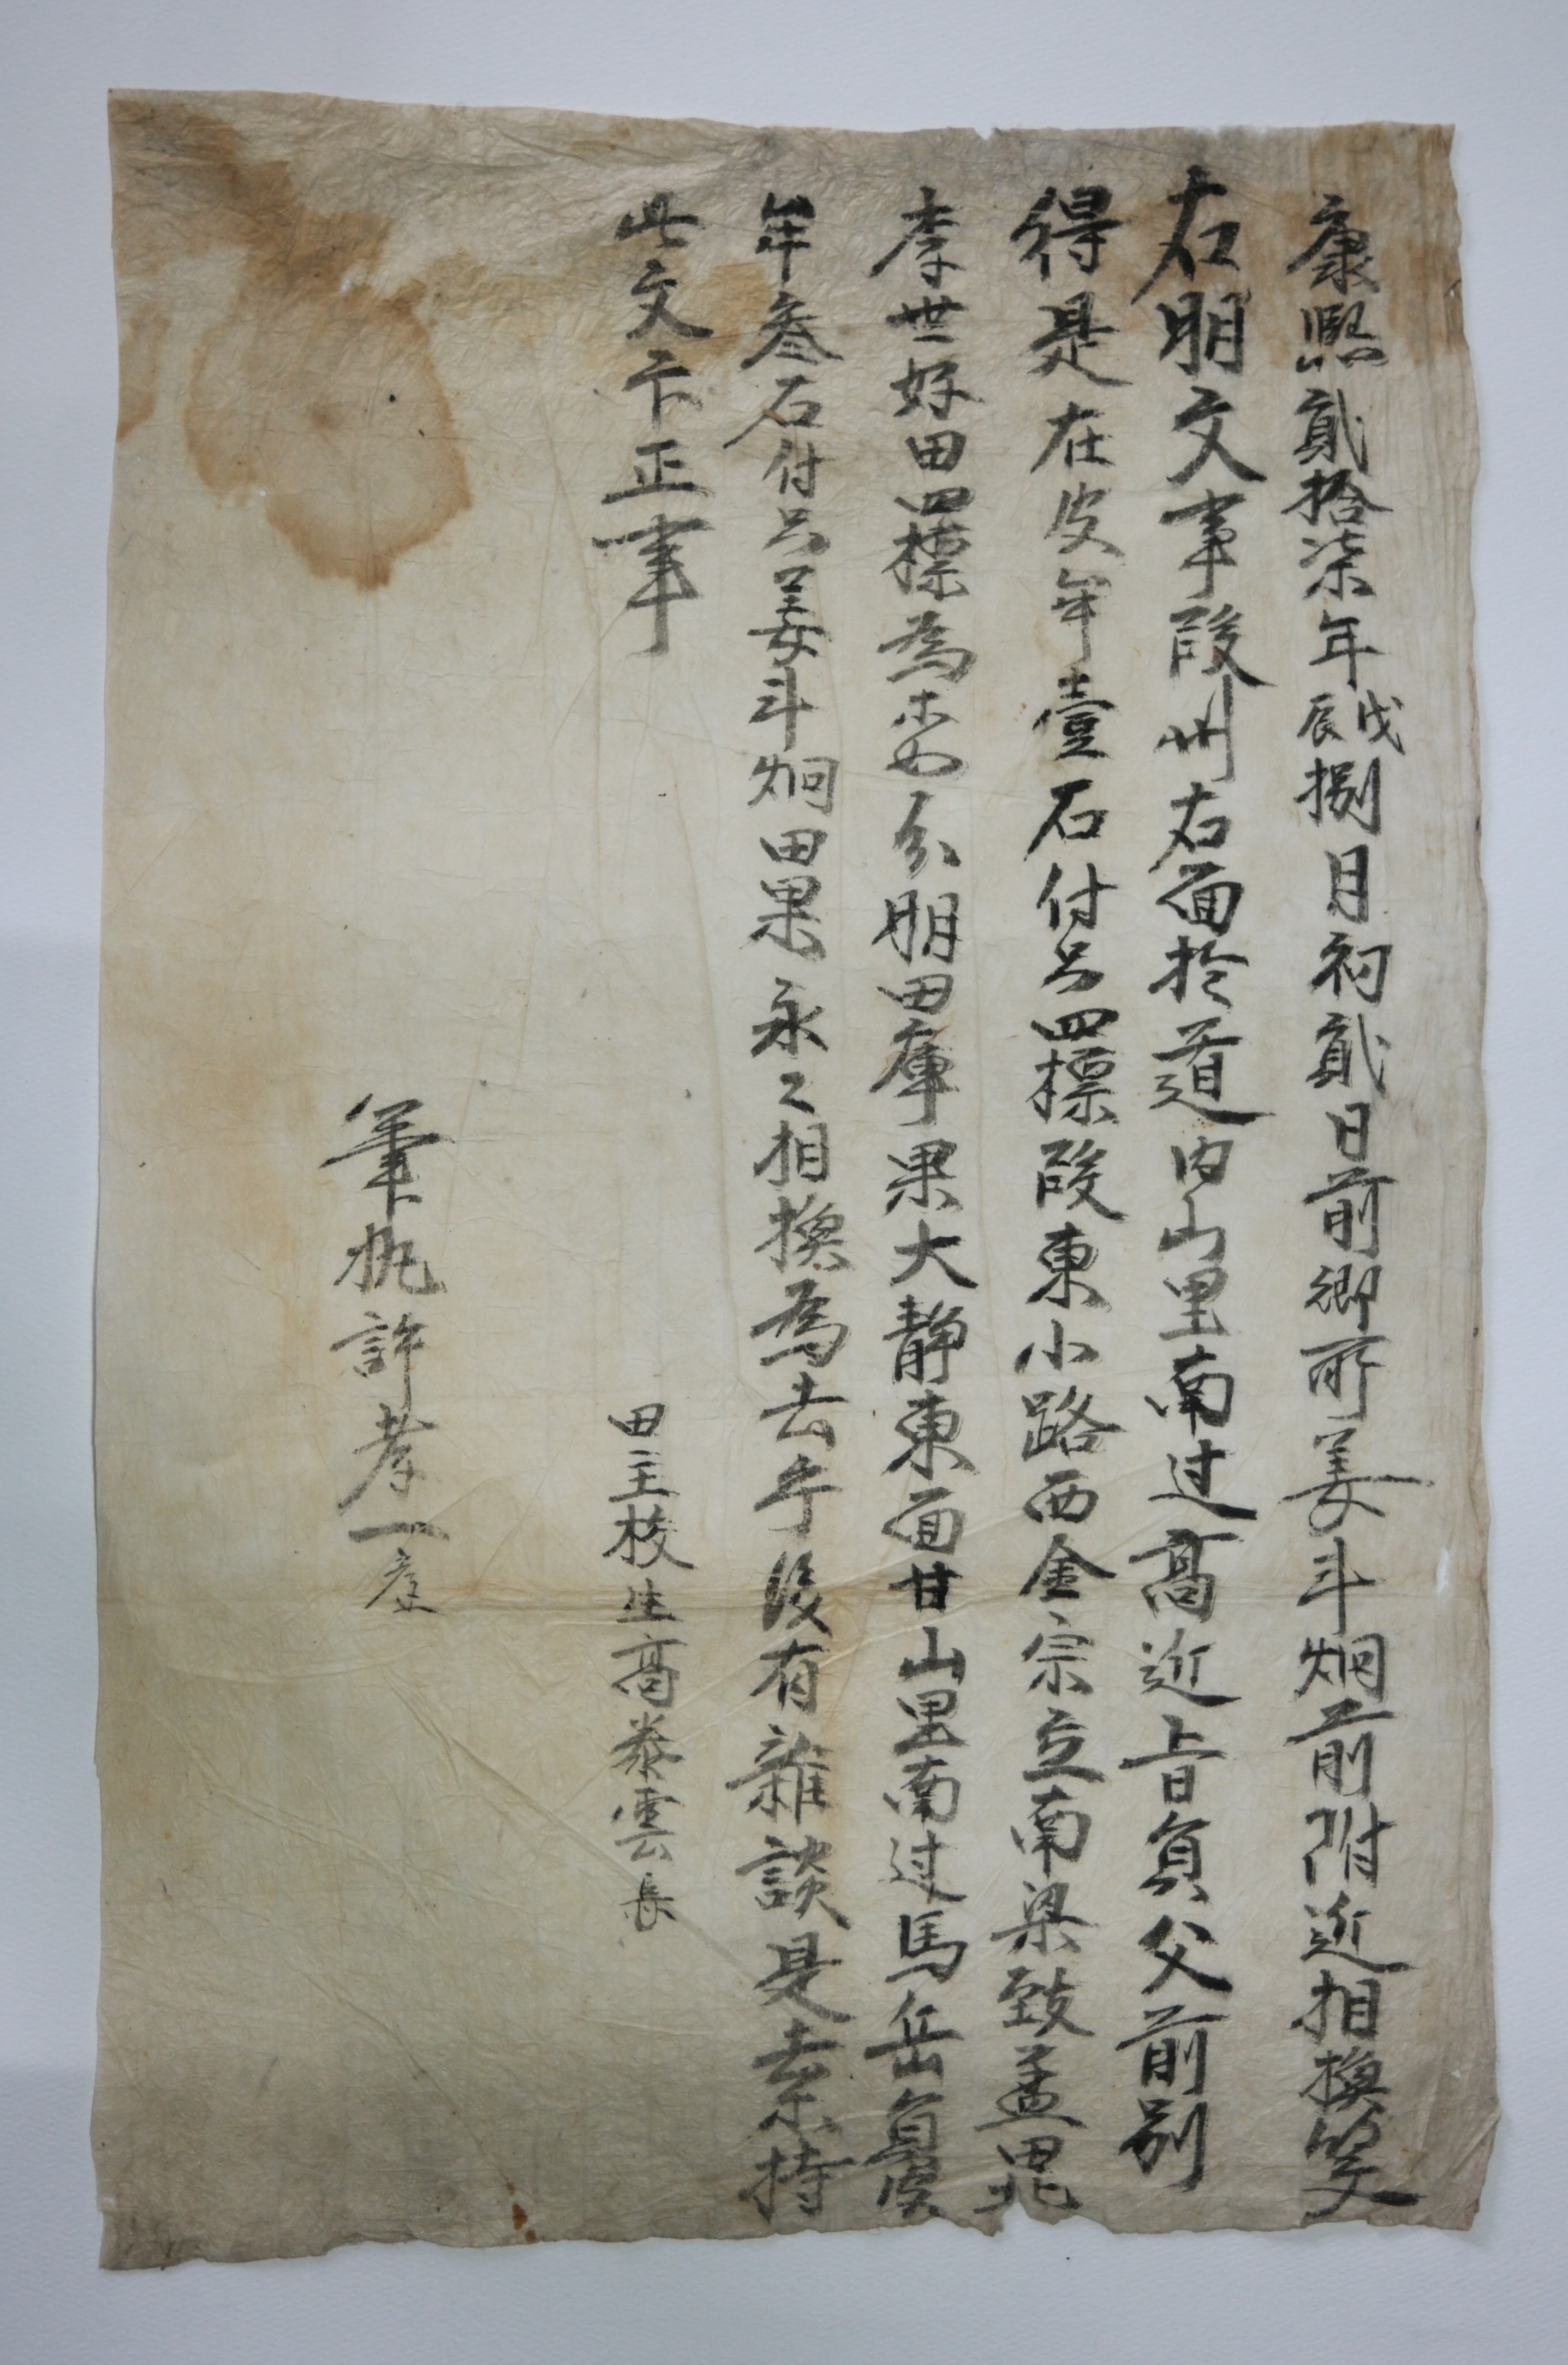 康熙貳拾柒年戊辰捌月初貳日前鄕所姜斗炯前附近相換
右明文事段州右面於道內山里南过高近旨員父前別
得是在皮牟壹石付只四標段東小路西金宗立南梁致孟田北
李世好田四標爲 分明田庫果大靜東面甘山里南过馬岳員皮
牟叁石付只姜斗炯田果永〻相換爲去乎後有雜談是去等持
此文卞正事
田主校生高泰雲
筆執許孝一